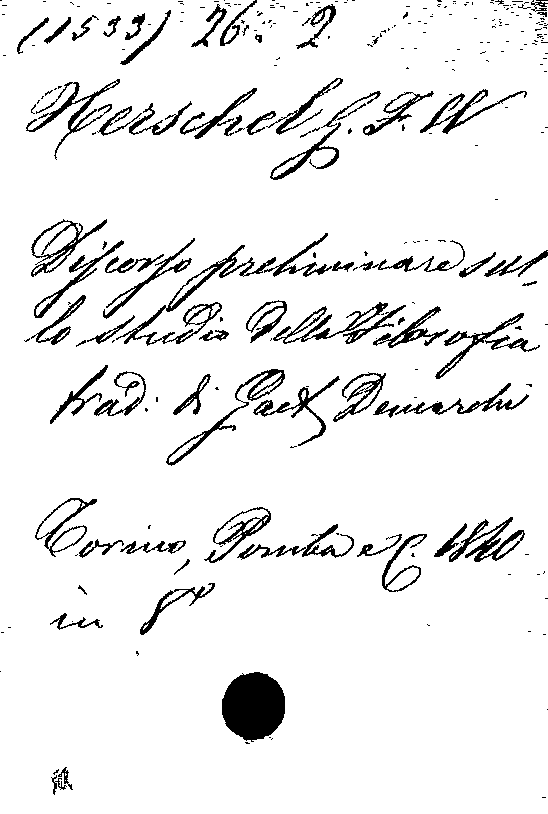 (1533) 26. 2
Herschel G. F. W
Discorso preliminare sul-
lo studio della Filosofia
trad: di Gaet Demarchi
Torino, Pomba e C. 1840
in 8°